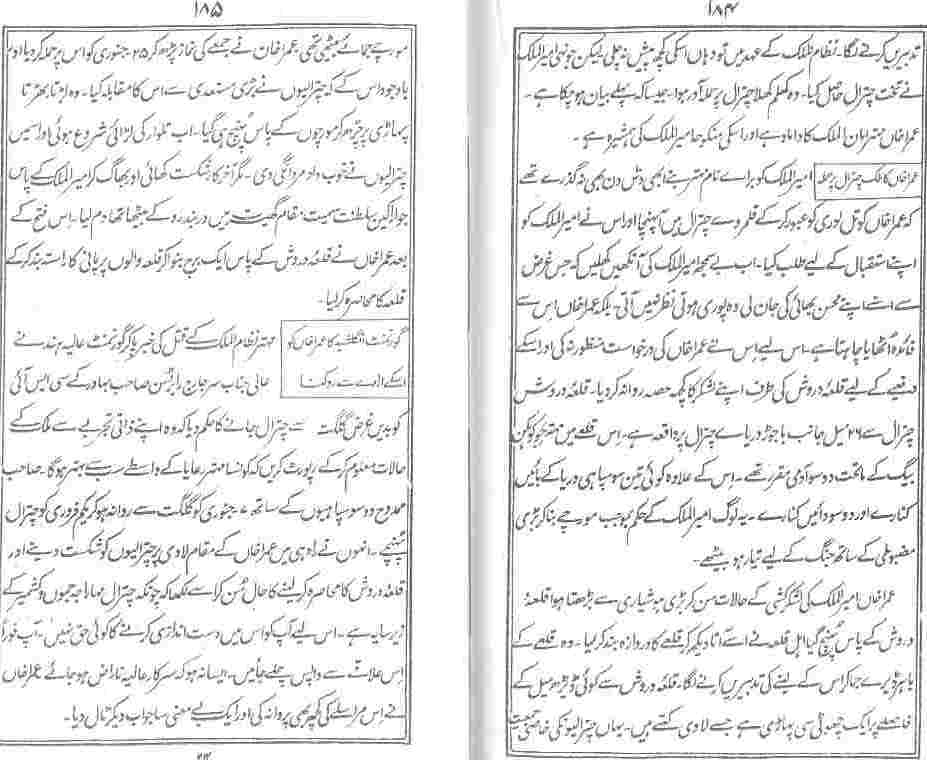 ۱۸۴
تدبیریں کرنے لگا۔ نظام الملک کے عہد میں تو وہاں اسکی کچھ پیش نہ چلی لیکن جونہی امیر الملک
نے تخت چترال حاصل کیا۔ وہ کھلم کھلا چترال پر حملہ آور ہوا۔ جیسا کہ پہلے بیان ہو چکا ہے۔
عمرا خان مہتر امان الملک کا داماد ہے اور اسکی منکوحہ امیر الملک کی ہمشیرہ ہے۔
عمرا خان کا ملک چترال پر حملہ
امیر الملک کو برائے نام مہتر بنے ابھی دس دن بھی نہ گذرے تھے
کہ عمرا خاں کوتل لوری کو عبور کر کے قلمروے چترال میں آپہنچا اور اس نے امیر الملک کو
اپنے استقبال کے لیے طلب کیا۔ اب بے سمجھ امیر الملک کی آنکھیں کھلیں کہ جس غرض
سے اسنے اپنے محسن بھائی کی جان لی وہ پوری ہوتی نظر نہیں آتی۔ بلکہ عمرا خاں اس سے
فائدہ اُٹھایا چاہتا ہے۔ اس لیے اس نے عمرا خاں کی درخواست منظور نہ کی اور اسکے
دفعیے کے لیے قلعۂ دروش کی طرف اپنے لشکر کا کچھ حصہ روانہ کر دیا۔ قلعۂ دروش
چترال سے ۲۶ میل جانب باجوڑ دریاے چترال پر واقعہ ہے۔ اس قلعے میں مہتر جو کوکن
بیگ کے ماتحت دو سو آدمی مقرر تھے۔ اس کے علاوہ کوئی تین سو سپاہی دریا کے بائیں
کنارے اور دو سو دائیں کنارے۔ یہ لوگ امیر الملک کے حکم بموجب مورچے بنا کر بڑی
مضبوطی کے ساتھ جنگ کے لیے تیار ہو بیٹھے۔
عمرا خاں امیر الملک کی لشکر کشی کے حالات سن کر بڑی ہوشیاری سے بڑھتا ہوا قلعۂ
دروش کے پاس پہنچ گیا اہل قلعہ نے اسے آتا دیکھ کر قلعے کا دروازہ بند کر لیا۔ وہ قلعے کے
باہر ڈیرے جما کر اس کے لینے کی تدبیریں کرنے لگا۔ قلعۂ دروش سے کوئی ڈیڑھ میل کے
فاصلے پر ایک چھوٹی سی پہاڑی ہے جسے لاوی کہتے ہیں۔ یہاں چترالیوں کی خاصی جمعیت
۱۸۵
مورچے جمائے بیٹھی تھی عمرا خان نے جمعے کی نماز پڑھ کر ۲۵ جنوری کو اس پر حملہ کر دیا اور
باوجود اس کے کہ چترالیوں نے بڑی مستعدی سے اس کا مقابلہ کیا۔ وہ لڑتا بھڑتا
پہاڑی پر چڑھ کر مورچوں کے پاس پہنچ ہی گیا۔ اب تلوار کی لڑائی شروع ہوئی اور اسمیں
چترالیوں نے خوب داد مردانگی دی۔ مگر آخر کار شکست کھائی اور بھاگ کر امیر الملک کے پاس
جو اراکین سلطنت سمیت بمقام گہیت میں در بند رو کے بیٹھا تھا دم لیا۔ اس فتح کے
بعد عمرا خاں نے قلعۂ دروش کے پاس ایک برج بنوا کر قلعہ والوں پر پانی کا راستہ بند کر کے
قلعہ کا محاصرہ کر لیا۔
گورنمنٹ انگلشیہ کا عمرا خاں کو
اسکے ارادے سے روکنا
مہتر نظام الملک کے قتل کی خبر پا کر گورنمنٹ عالیہ ہند نے
عالی جناب سر جارج رابرٹسن صاحب بہادر کے سی ایس آئی
کو بدیں غرض گلگت سے چترال جانے کا حکم دیا کہ وہ اپنے ذاتی تجربے سے ملک کے
حالات معلوم کر کے رپورٹ کریں کہ کونسا مہتر رعایا کے واسطے سب سے بہتر ہوگا۔ صاحب
ممدوح دو سو سپاہیوں کے ساتھ ۷ جنوری کو گلگت سے روانہ ہو کر یکم فروری کو چترال
پہنچے۔ انھوں نے راہ ہی میں عمرا خاں کے مقام لاوی پر چترالیوں کو شکست دینے اور
قلعۂ دروش کا محاصرہ کر لینے کا حال سُن کر اسے لکھا کہ چونکہ چترال مہاراجہ جموں و کشمیر کے
زیر سایہ ہے۔ اس لیے آپ کو اس میں دست اندازی کرنے کا کوئی حق نہیں۔ آپ فوراً
اس علاقے سے واپس چلے جائیں۔ ایسا نہ ہو کہ سرکار عالیہ ناراض ہو جائے عمرا خاں
نے اس مراسلے کی کچھ بھی پروا نہ کی اور ایک بے معنی سا جواب دیکر ٹال دیا۔
۲۴